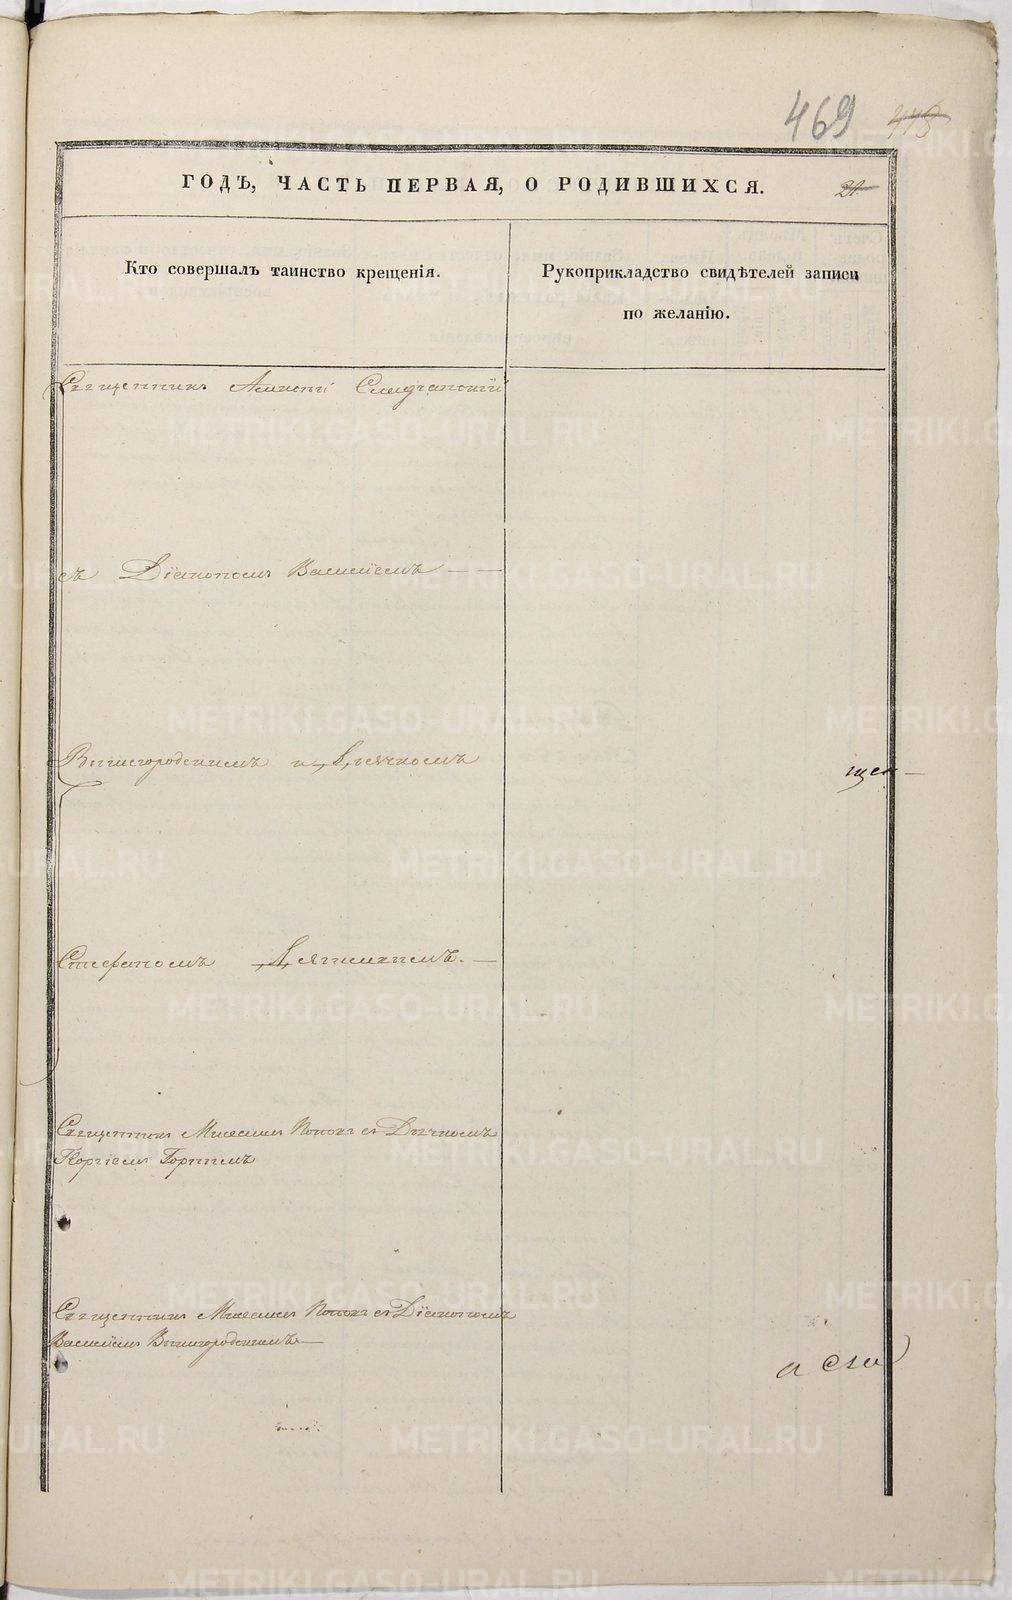 469 443
ГОДЪ, ЧАСТЬ ПЕРВАЯ, О РОДИВШИХСЯ. 21
Кто совершалъ таинство крещенія.
Рукоприкладство свидѣтелей записи
по желанію.
Священникъ
съ Діакономъ Василіемъ
Вышегородскимъ и Дьячкомъ
щен
Стефаномъ
Священникъ Михаилъ Поповъ съ Дьячкомъ
Георгіемъ
Священникъ Михаилъ Поповъ съ Діакономъ
Василіемъ Вышегородскимъ
METRIKI.GASO-URAL.RU